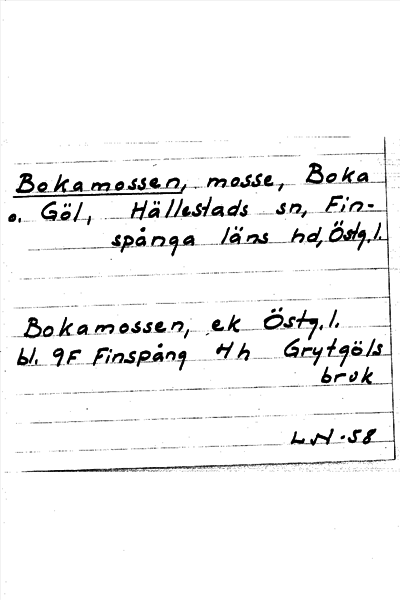 Bokamossen, mosse, Boka
o. Göl, Hällestads sn, Fin-
spånga läns hd, Östg.l.
Bokamossen, ek Östg.l.
bl. 9F Finspång 4h Grytgöls
bruk
LN-58